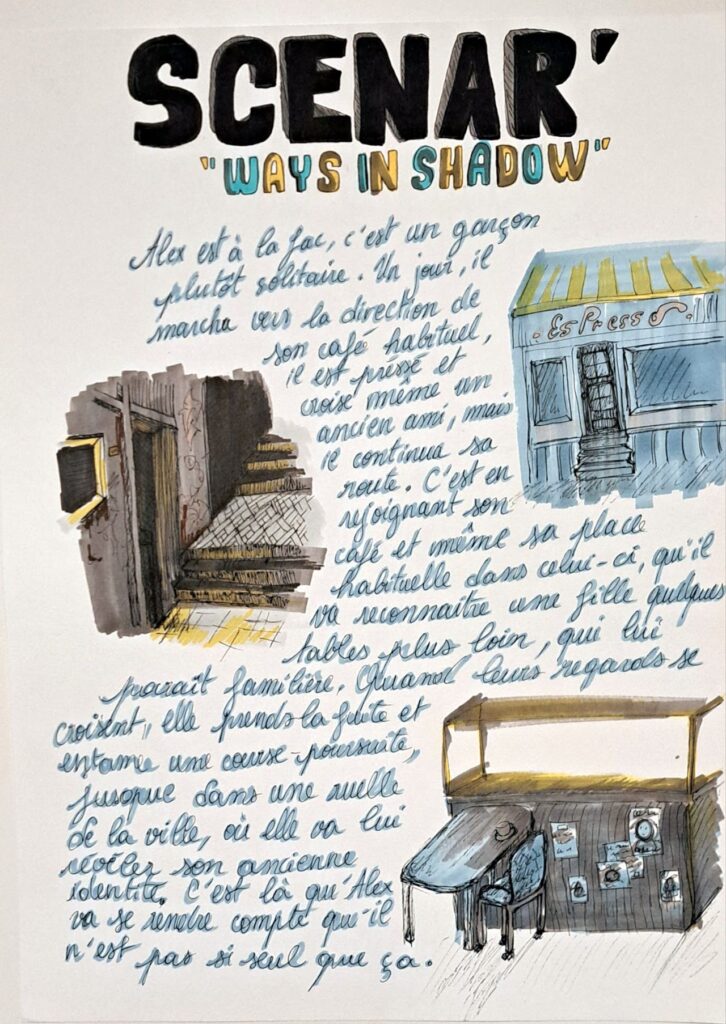 SCENAR'
"WAYS IN SHADOW"
Alex est à la fac, c'est un garçon
plutôt solitaire. Un jour, il
marcha vers la direction de
son café habituel,
il est pressé et
croise même un
ancien ami, mais
il continua sa
route. C'est en
rejoignant son
café et même sa place
habituelle dans celui-ci, qu'il
va reconnaitre une fille quelques
tables plus loin, qui lui
parait familière. Quand leurs regards se
croisent, elle prends la fuite et
entame une course-poursuite,
jusque dans une ruelle
de la ville, où elle va lui
révéler son ancienne
identité. C'est là qu'Alex
va se rendre compte que il
n'est pas si seul que ça.
Espresso